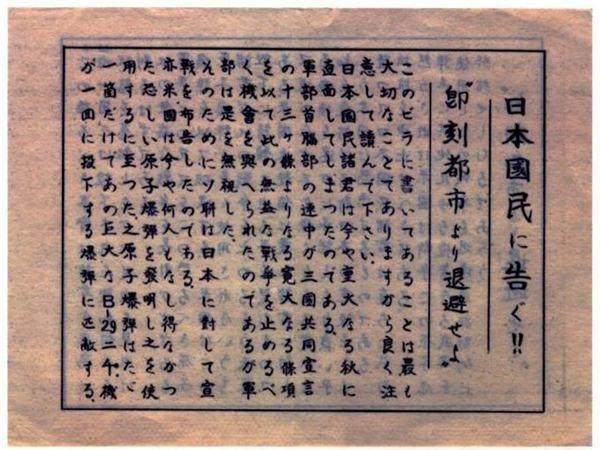 日本國民に告ぐ!!
"即刻都市より退避せよ"
このビラに書いてあることは最も
大切なことでありますから良く注
意して讀んで下さい。
日本國民諸君は今や重大なる秋に
直面してしまつたのである
軍部首脳部の連中が三國共同宣言
の十三ヶ條よりなる寛大なる條項
を以て此の無益な戰爭を止めるべ
く機會を與へられたのであるが軍
部は是を無視した
そのためにソ聯は日本に對して宣
戰を布告したのである。
亦米國は今や何人もなし得なかつ
た恐しい原子爆彈を發明し之を使
用するに至つた。之原子爆彈はたゞ
一箇だけであの巨大なB-29二千機
が一回に投下する爆彈に匹敵する。